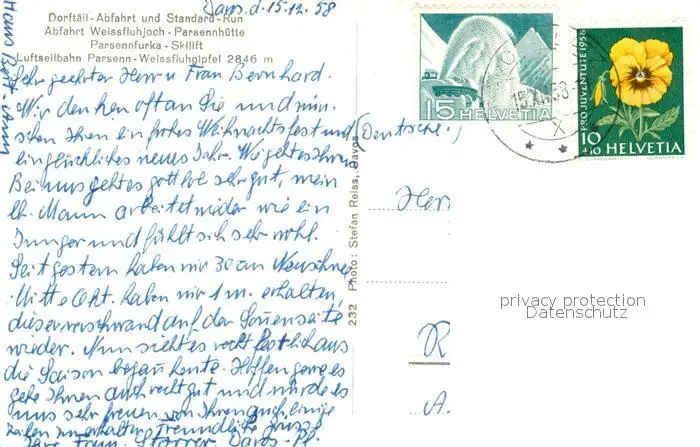 Davos d. 15.12.58
Dorftäli-Abfahrt und Standard-Run
Abfahrt Weissfluhjoch - Parsennhütte
Parsennfurka - Skilift
Luftseilbahn Parsenn-Weissfluhgipfel 2846 m
Sehr geehrter Herr u Frau Bernhard.
Wir denken oft an Sie und wün-
schen Ihnen ein frohes Weihnachtsfest und (Deutsche!)
ein glückliches neues Jahr. Wie geht es Ihnen
Bei uns geht es gottlob sehr gut, mein
lb. Mann arbeitet wieder wie ein
Junger und fühlt sich sehr wohl.
Seit gestern haben wir 30 cm Neuschnee
Mitte Okt. haben wir 1 m. erhalten,
dieser verschwand auf der Sonnenseite
wieder. Nun sieht es recht festlich aus
die Saison begann heute. Hoffen gerne es
gehe Ihnen auch recht gut und würde es
uns sehr freuen von Ihnen auch einige
Zeilen zu erhalten. Freundliche Grüsse
Davos-Pl.
Hans
232 Photo: Stefan Reiss, Davos
15 HELVETIA
15.XII.58
X
PRO JUVENTUTE 1958
10
+10 HELVETIA
Herr
R
A.
privacy protection
Datenschutz